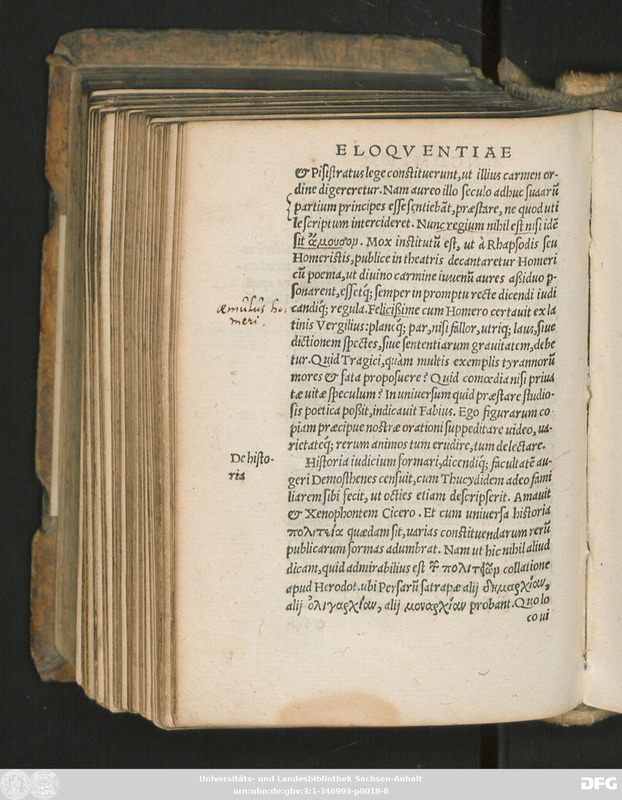 ELOQVENTIAE
& Pisistratus lege constituerunt, ut illius carmen or-
dine digereretur. Nam aureo illo seculo adhuc suarū
partium principes esse sentiebāt, præstare, ne quod uti
le scriptum intercideret. Nunc regium nihil est nisi idē
sit ἄμουσον. Mox institutū est, ut à Rhapsodis seu
Homeristis, publice in theatris decantaretur Homeri
cū poema, ut diuino carmine iuuenū aures assiduo p-
sonarent, essetq́; semper in promptu recte dicendi iudi
candiq́; regula. Felicissime cum Homero certauit ex la
tinis Vergilius: planeq́; par, nisi fallor, utriq; laus, siue
dictionem spectes, siue sententiarum grauitatem, debe
tur. Quid Tragici, quàm multis exemplis tyrannorū
mores & fata proposuere? Quid comœdia nisi priua
tæ uitæ speculum? In uniuersum quid præstare studio-
sis poetica possit, indicauit Fabius. Ego figurarum co
piam præcipue nostræ orationi suppeditare uideo, ua-
rietateq́; rerum animos tum erudire, tum delectare.
æmulus ho
meri.
De histo-
ria
Historia iudicium formari, dicendiq́; facultatē au-
geri Demosthenes censuit, cum Thucydidem adeo fami
liarem sibi fecit, ut octies etiam descripserit. Amauit
& Xenophontem Cicero. Et cum uniuersa historia
πολιτεία quædam sit, uarias constituendarum rerū
publicarum formas adumbrat. Nam ut hic nihil aliud
dicam, quid admirabilius est collatione
apud Herodot. ubi Persarū satrapæ alij δημαρχίαν,
alij ὀλιγαρχίαν, alij μοναρχίαν probant. Quo lo
co ui
Universitäts- und Landesbibliothek Sachsen-Anhalt
urn:nbn:de:gbv:3:1-346993-p0018-8
DFG